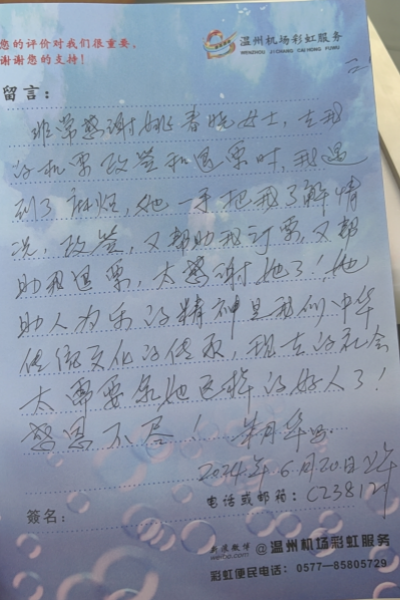 您的评价对我们很重要。
谢谢您的支持！
温州机场彩虹服务
WENZHOU JICHANG CAIHONG FUWU
留言：
非常感谢姚春晓女士，在我
的机票改签和退票时，我遇
到了麻烦，她一手把我了解情
况，改签，又帮助我订票，又帮
助我退票，太感谢她了！她
助人为乐的精神是我们中华
传统文化的传承，现在的社会
太需要象她这样的好人了！
感恩不尽！
2024年6月20日上午
电话或邮箱：C238121
签名：
新浪微博
weibo.com
@温州机场彩虹服务
彩虹便民电话：0577—85805729